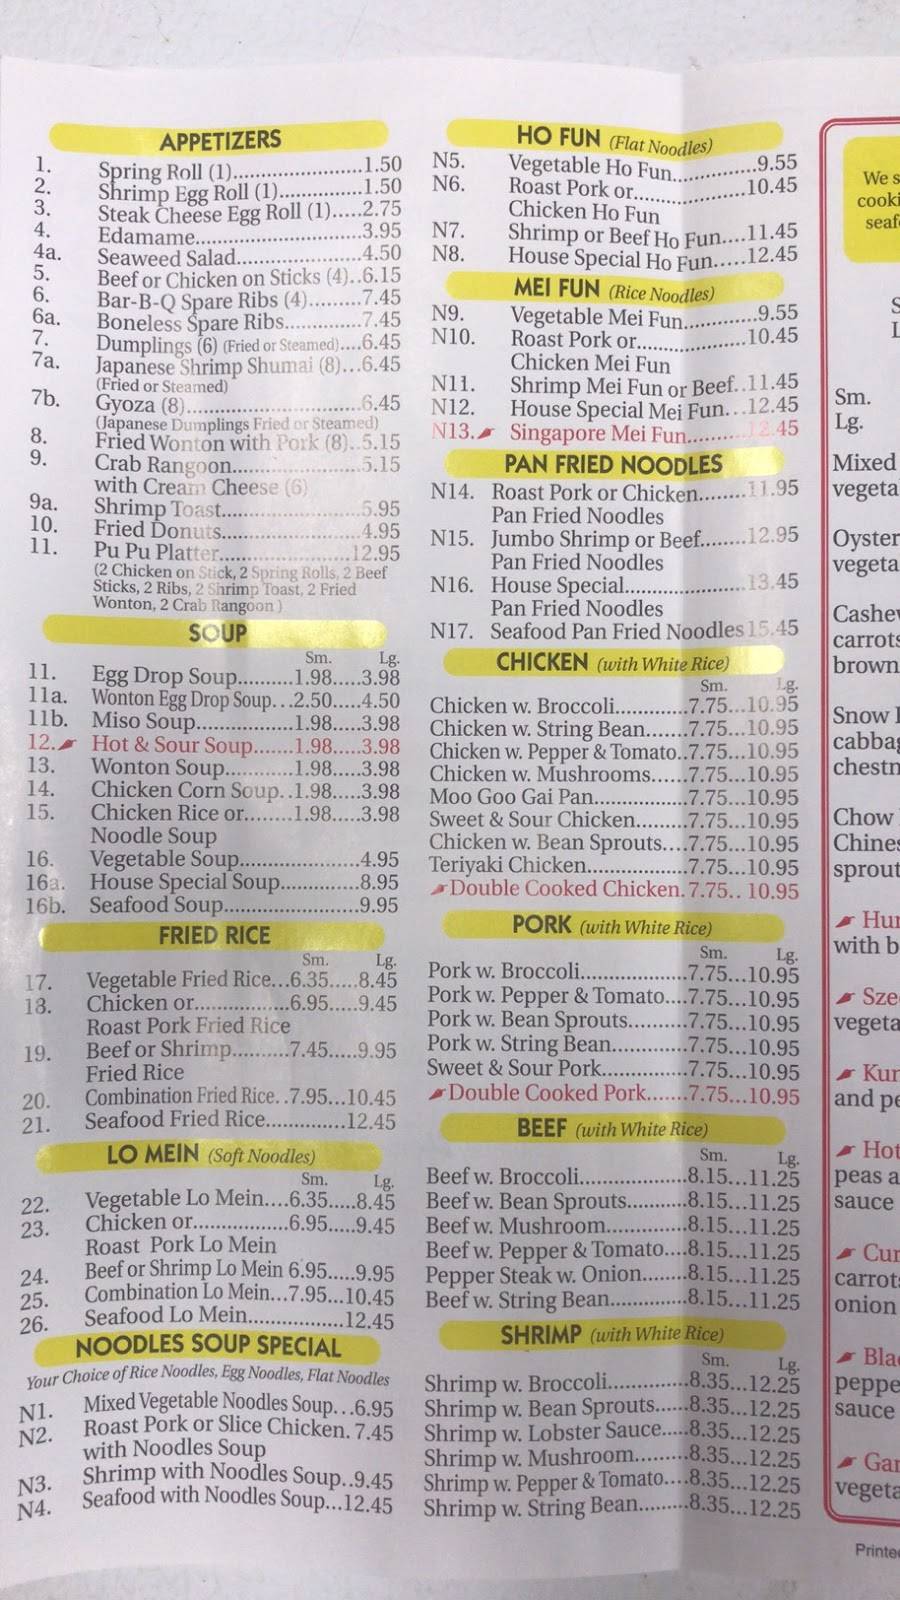 APPETIZERS
1. Spring Roll (1)........................1.50
2. Shrimp Egg Roll (1)...............1.50
3. Steak Cheese Egg Roll (1).....2.75
4. Edamame..............................3.95
4a. Seaweed Salad......................4.50
5. Beef or Chicken on Sticks (4)..6.15
6. Bar-B-Q Spare Ribs (4).........7.45
6a. Boneless Spare Ribs.............7.45
7. Dumplings (6) (Fried or Steamed)....6.45
7a. Japanese Shrimp Shumai (8)...6.45
(Fried or Steamed)
7b. Gyoza (8)...............................6.45
(Japanese Dumplings Fried or Steamed)
8. Fried Wonton with Pork (8)..5.15
9. Crab Rangoon.......................5.15
with Cream Cheese (6)
9a. Shrimp Toast.........................5.95
10. Fried Donuts.........................4.95
11. Pu Pu Platter.......................12.95
(2 Chicken on Stick, 2 Spring Rolls, 2 Beef
Sticks, 2 Ribs, 2 Shrimp Toast, 2 Fried
Wonton, 2 Crab Rangoon )
SOUP
Sm. Lg.
11. Egg Drop Soup..........1.98.....3.98
11a. Wonton Egg Drop Soup...2.50.....4.50
11b. Miso Soup.................1.98.....3.98
12. Hot & Sour Soup.......1.98.....3.98
13. Wonton Soup............1.98.....3.98
14. Chicken Corn Soup..1.98.....3.98
15. Chicken Rice or.........1.98.....3.98
Noodle Soup
16. Vegetable Soup.....................4.95
16a. House Special Soup..............8.95
16b. Seafood Soup........................9.95
FRIED RICE
Sm. Lg.
17. Vegetable Fried Rice...6.35.....8.45
18. Chicken or................6.95.....9.45
Roast Pork Fried Rice
19. Beef or Shrimp..........7.45.....9.95
Fried Rice
20. Combination Fried Rice..7.95...10.45
21. Seafood Fried Rice..............12.45
LO MEIN (Soft Noodles)
Sm. Lg.
22. Vegetable Lo Mein....6.35.....8.45
23. Chicken or.................6.95.....9.45
Roast Pork Lo Mein
24. Beef or Shrimp Lo Mein 6.95.....9.95
25. Combination Lo Mein...7.95...10.45
26. Seafood Lo Mein.................12.45
NOODLES SOUP SPECIAL
Your Choice of Rice Noodles, Egg Noodles, Flat Noodles
N1. Mixed Vegetable Noodles Soup...6.95
N2. Roast Pork or Slice Chicken. 7.45
with Noodles Soup
N3. Shrimp with Noodles Soup..9.45
N4. Seafood with Noodles Soup...12.45
HO FUN (Flat Noodles)
N5. Vegetable Ho Fun..............9.55
N6. Roast Pork or....................10.45
Chicken Ho Fun
N7. Shrimp or Beef Ho Fun....11.45
N8. House Special Ho Fun.....12.45
MEI FUN (Rice Noodles)
N9. Vegetable Mei Fun.............9.55
N10. Roast Pork or....................10.45
Chicken Mei Fun
N11. Shrimp Mei Fun or Beef..11.45
N12. House Special Mei Fun...12.45
N13. Singapore Mei Fun..........12.45
PAN FRIED NOODLES
N14. Roast Pork or Chicken........11.95
Pan Fried Noodles
N15. Jumbo Shrimp or Beef........12.95
Pan Fried Noodles
N16. House Special.....................13.45
Pan Fried Noodles
N17. Seafood Pan Fried Noodles 15.45
CHICKEN (with White Rice)
Sm. Lg.
Chicken w. Broccoli.............7.75...10.95
Chicken w. String Bean.......7.75...10.95
Chicken w. Pepper & Tomato..7.75...10.95
Chicken w. Mushrooms......7.75...10.95
Moo Goo Gai Pan................7.75...10.95
Sweet & Sour Chicken.........7.75...10.95
Chicken w. Bean Sprouts....7.75...10.95
Teriyaki Chicken..................7.75...10.95
Double Cooked Chicken. 7.75.. 10.95
PORK (with White Rice)
Sm. Lg.
Pork w. Broccoli...................7.75...10.95
Pork w. Pepper & Tomato....7.75...10.95
Pork w. Bean Sprouts..........7.75...10.95
Pork w. String Bean.............7.75...10.95
Sweet & Sour Pork...............7.75...10.95
Double Cooked Pork.......7.75...10.95
BEEF (with White Rice)
Sm. Lg.
Beef w. Broccoli...................8.15...11.25
Beef w. Bean Sprouts...........8.15...11.25
Beef w. Mushroom..............8.15...11.25
Beef w. Pepper & Tomato....8.15...11.25
Pepper Steak w. Onion........8.15...11.25
Beef w. String Bean..............8.15...11.25
SHRIMP (with White Rice)
Sm. Lg.
Shrimp w. Broccoli..............8.35...12.25
Shrimp w. Bean Sprouts......8.35...12.25
Shrimp w. Lobster Sauce.....8.35...12.25
Shrimp w. Mushroom.........8.35...12.25
Shrimp w. Pepper & Tomato....8.35...12.25
Shrimp w. String Bean.........8.35...12.25
We s
cooki
seaf
S
L
Sm.
Lg.
Mixed
vegeta
Oyster
vegeta
Cashe
carrots
brown
Snow
cabbag
chestn
Chow
Chines
sprout
Hun
with b
Sze
vegeta
Kun
and pe
Hot
peas a
sauce
Cur
carrot
onion
Bla
peppe
sauce
Gar
vegeta
Printe